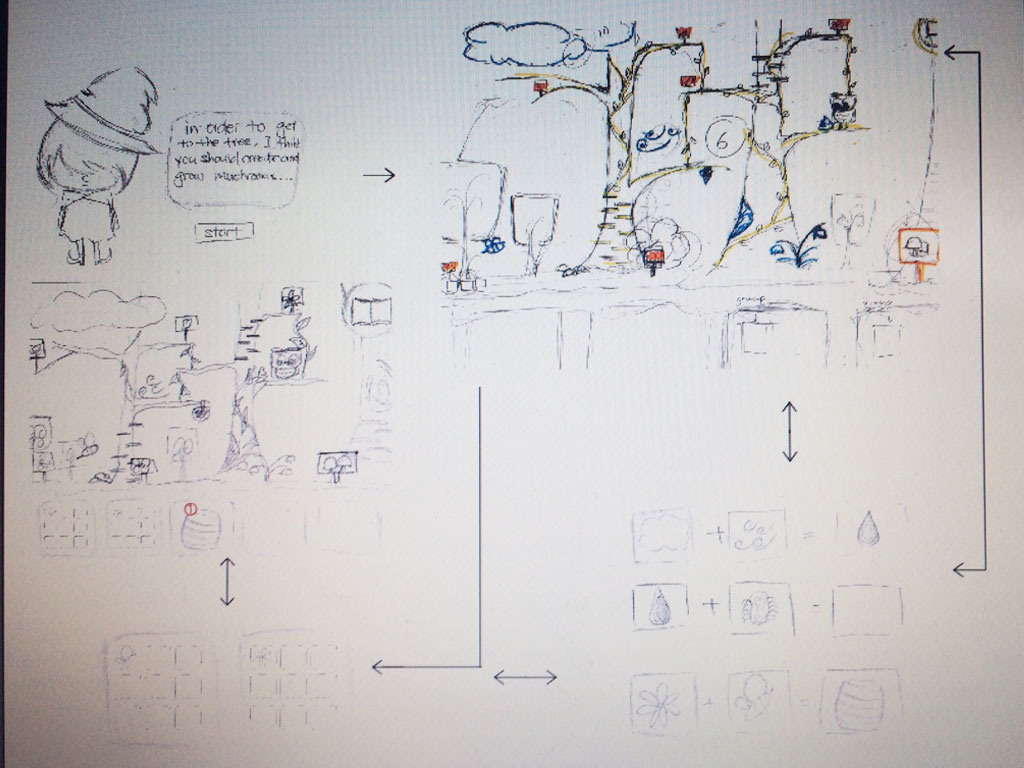 in order to get
to the tree, I think
you should create and
grow muchrooms...
start
6
group
group
1